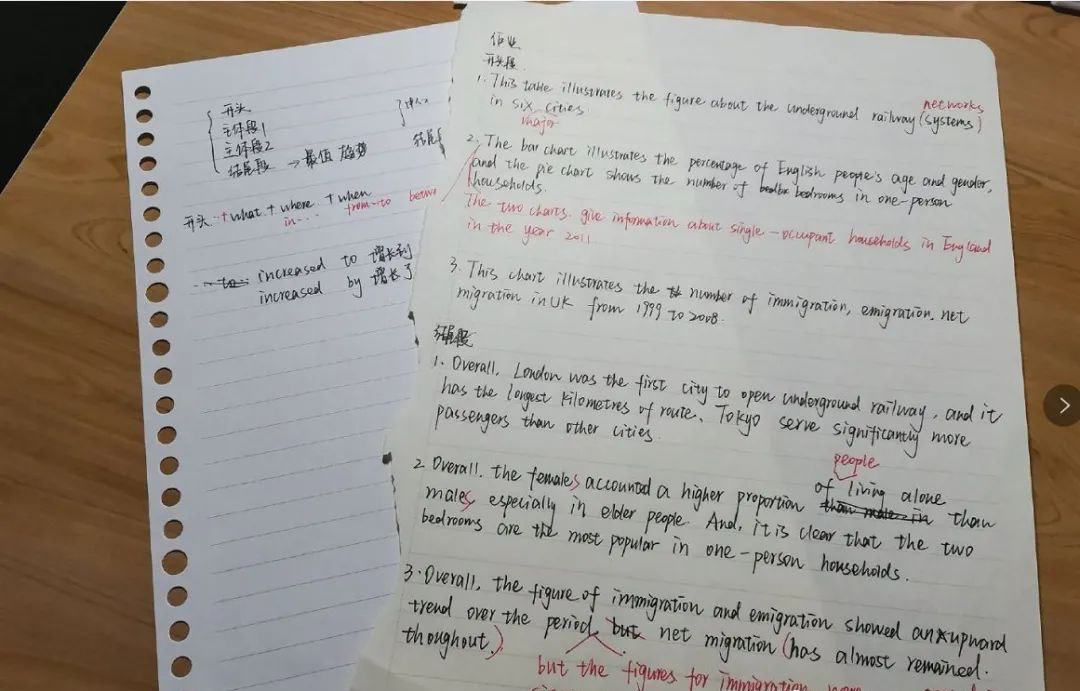 开头
主体段1
主体段2
结尾段 → 最值 趋势
开头 + what + where + when
in... from-to
increased to 增长到
increased by 增长了
作业
开头段
1. This table illustrates the figure about the underground railway (systems) networks
in six cities.
major
2. The bar chart illustrates the percentage of English people's age and gender,
and the pie chart shows the number of bedrooms in one-person
households.
The two charts give information about single-occupant households in England
in the year 2011
3. This chart illustrates the number of immigration, emigration, net
migration in UK from 1999 to 2008.
结尾段
1. Overall, London was the first city to open underground railway, and it
has the longest kilometres of route. Tokyo serve significantly more
passengers than other cities.
people
2 Overall, the females accounted a higher proportion of living alone than
males especially in elder people. And, it is clear that the two
bedrooms are the most popular in one-person households.
3. Overall, the figure of immigration and emigration showed an upward
trend over the period, but net migration (has almost remained
thoughout.)
but the figures for immigration